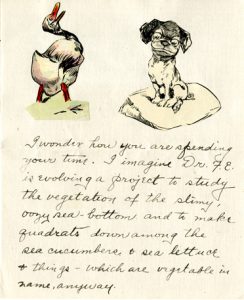 I wonder how you are spending
your time. I imagine Dr. F.E.
is evolving a project to study
the vegetation of the slimy,
oozy sea-bottom and to make
quadrats down among the
sea cucumbers, & sea lettuce
& things - which are vegetable in
name, anyway.